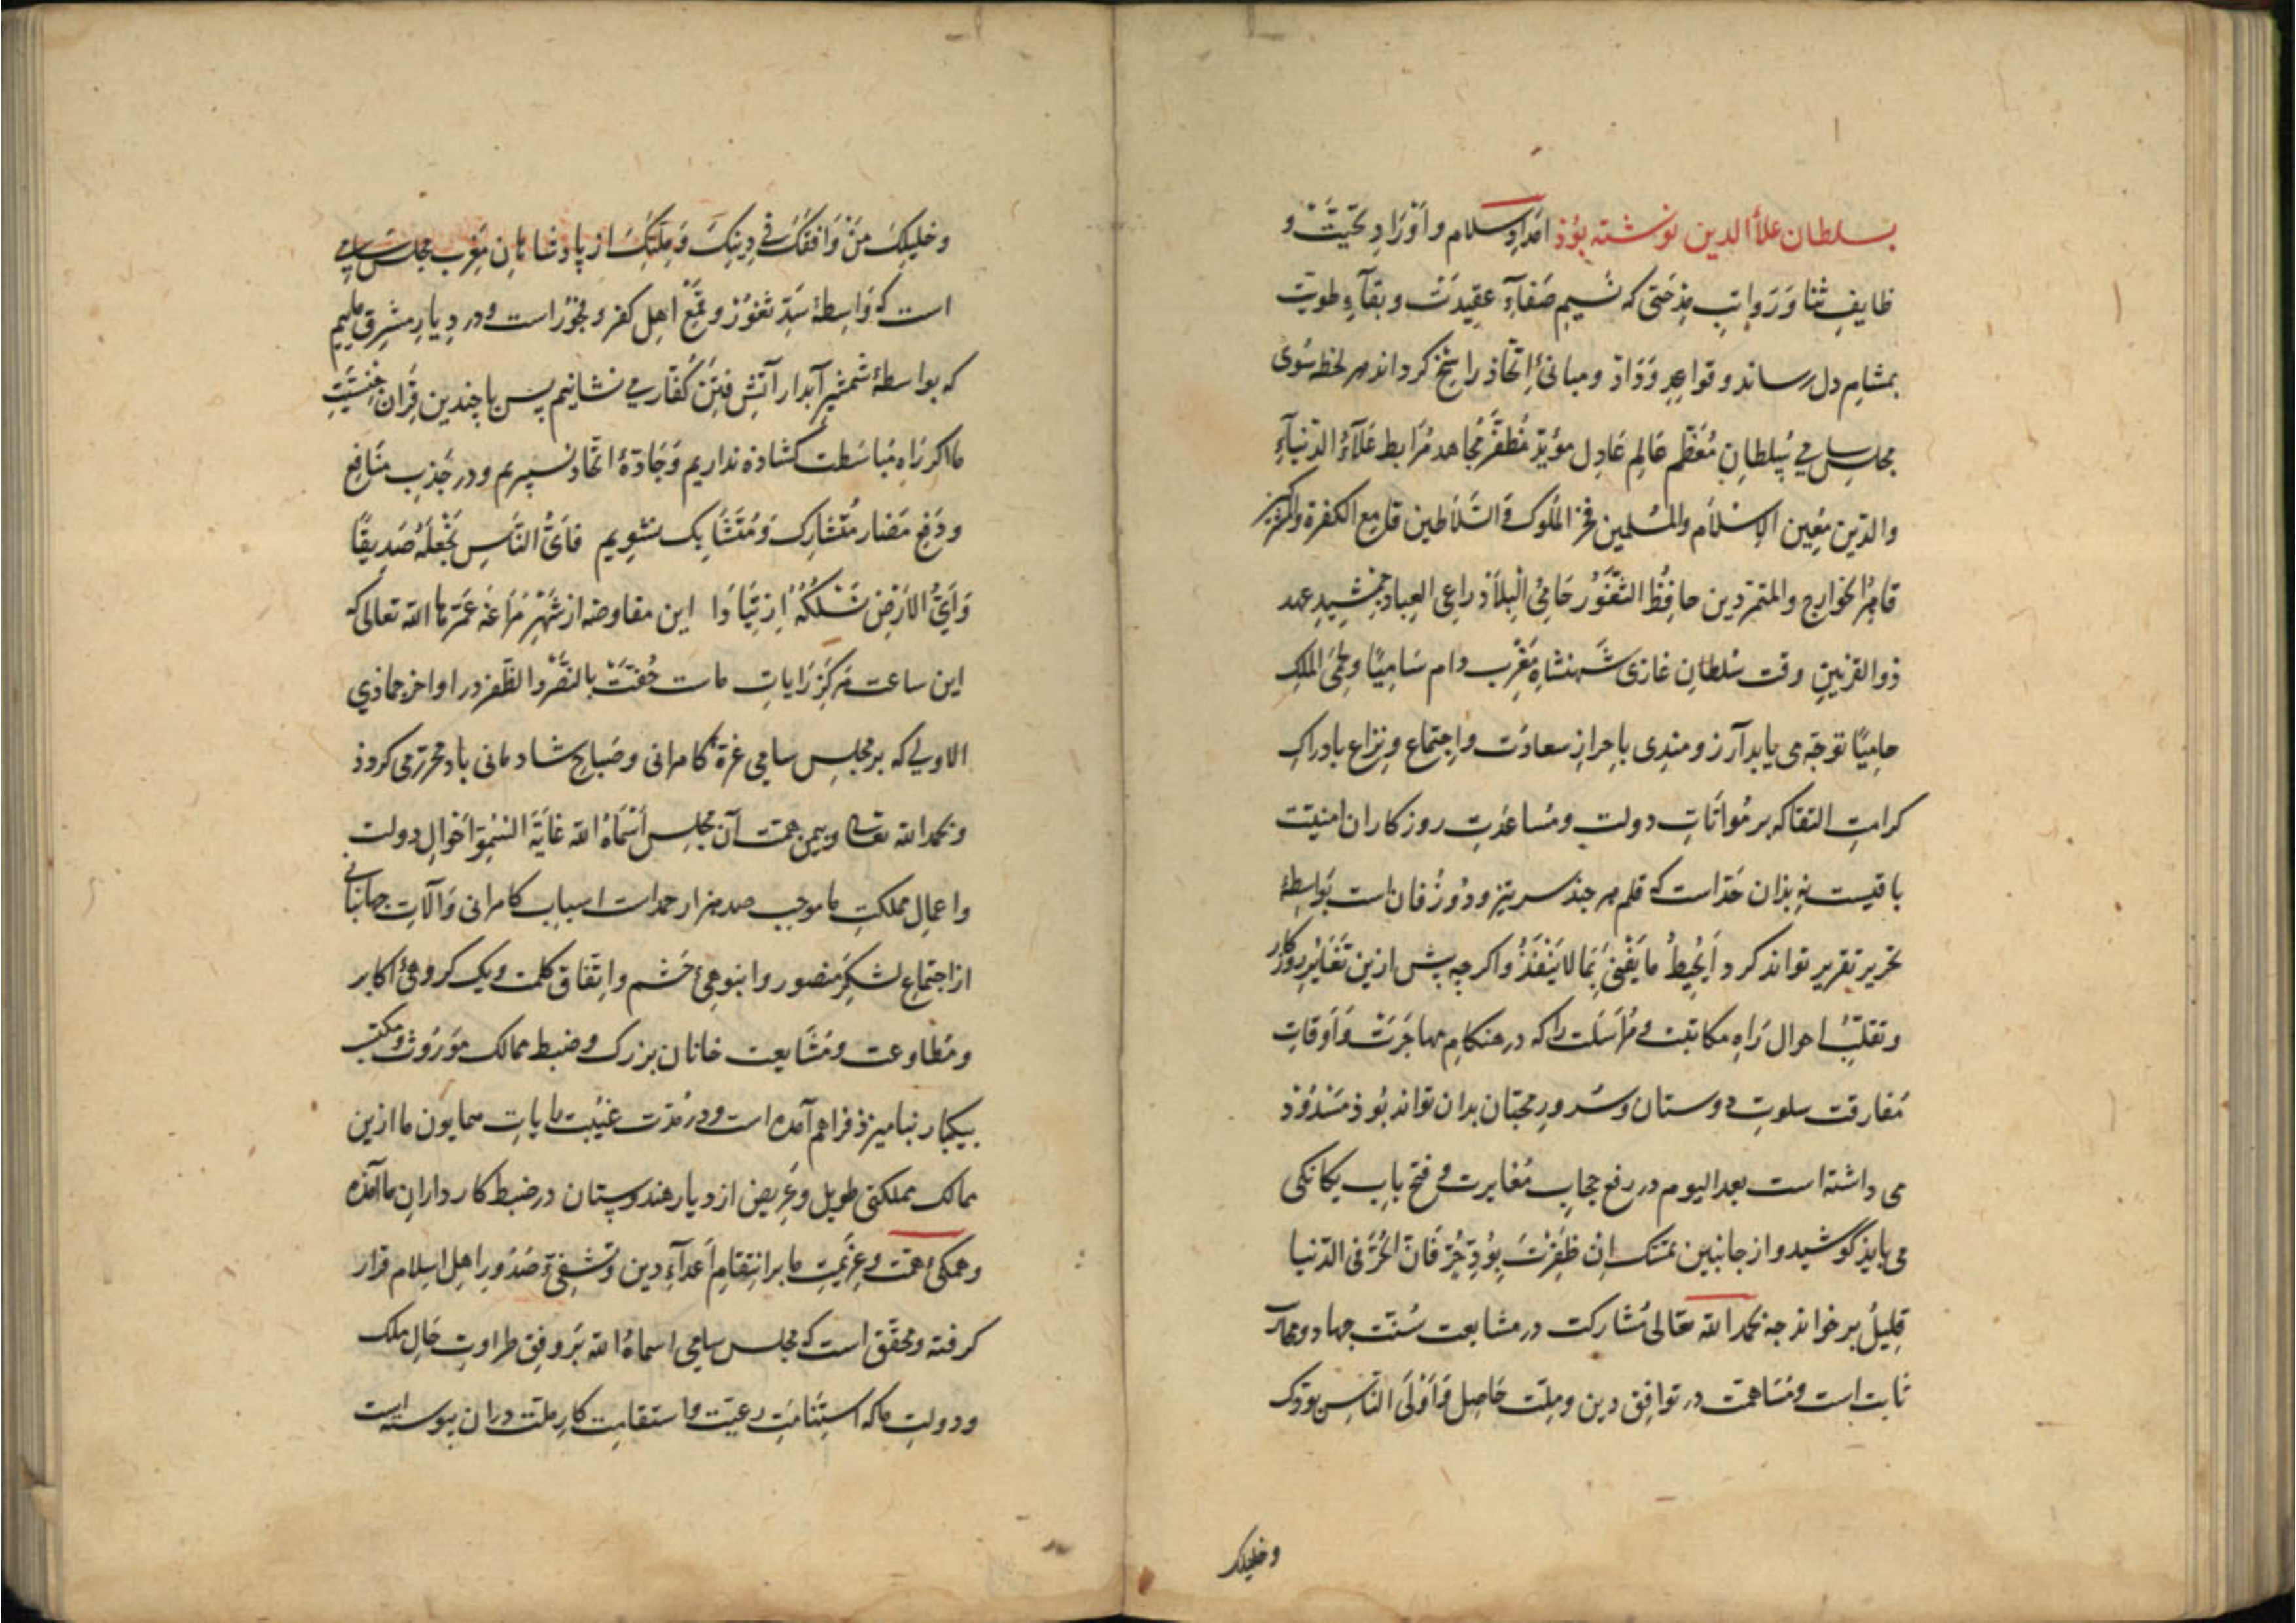 بسلطان علاالدین نوشته بوذ امداد سلام و اوراد تحیت و
ظایف ثنا وَرَواتبِ مِذحَتی که نسیم صَفاءِ عقیدَت و بقآءِ طویت
بمشام دل رساند و قواعدِ وَدَاد و مبانیٔ اتّحاذ راسخ کرداند هر لحظه سُوی
مجلسِ سامیٔ سُلطانِ مُعَظّم عَالِم عَادِل مؤیّد مُظفّر مُجاهد مُرَابط عَلَآءُ الدّنیآءِ
والدّین مُعِین الإسْلَام والمُسْلمین فخر المُلوک وَ السَّلَاطین قامع الکفرة والمشرکین
قاهر الخوارج والمتمرّدین حافِظُ الثّغوُر حَامِیُ الْبِلَاد راعی العِباد جمشیدِ عهد
ذوالقرنینِ وقت سُلطانِ غازی شَهنشاهِ مَغْرِب دام سَامِیًا و لحِمَی الملکِ
حامِیًا توجّه می یابد آرزومندی باِحرازِ سعادَت واِجتماع و نِزاع بادراکِ
کرامتِ التقا که بر مُواتاتِ دولت و مُساعَدَتِ روزکاران امنیّت
باقیست نه بذان حَدّاست که قلم هر جند سر تیز و دُوزُفان است بَواسِطهٔ
تحریر تقریر تواند کرد اَیُحِیطُ مَا یَفْنیٰ بِمَا لا یَنْفَذُ و اکرچه پیش ازین تَغَایُرِ روزکار
وتقلّبُ احوال رَاهِ مکاتبَت و مُرَاسَلَت را که در هنکامِ مهاجَرَتْ وَ اَوقاتِ
مُفارقت سلوتِ دوستان و سُرورِ محبّان بدان تواند بُوذ مَسْدُوْد
می داشته است بعد الیوم در رفع حجابِ مُغایرت و فتح بابِ یکانکی
می بایذ کوشید و از جانبین تمسّک اِنْ ظَفِرْتَ بِوُدِّ حُرٍّ فَاِنَّ الحُرَّ فی الدّنیا
قلِیلُ بر خواند جه بحمدالله تعالی مُشارکت در مشایعت سُنّت جهاد و مجاهدت
ثابت است و مُسَاهمت در توافق دین و مِلّت حَاصِل وَ اَوْلَی النَّاسِ بودّک
وخلیلک
وخلیلِکَ مَنْ وَافَقَکَ فی دِیْنِکَ وَ مِلّتِکَ از پادشاهانِ مَغرِب مجلس سامی
است که وَاسِطهٔ سَدِّ ثغوُر و قَمْع اهل کفر و فجوُر است و در دِیارِ مشرِق ماییم
که بواسطهٔ شمشیرِ آبدار آتشِ فِتَنِ کُفّار می نشانیم پس با چندین قِرَانِ جنسیّت
ما اکر رَاهِ مُباسَطت کشاده نداریم وَ جَادّهٔ اتّحاد نسپریم و در جَذبِ منَافع
و دَفعِ مَضار مُتشارِک وَ مُتَشَابِک نشویم فَاَیُّ النَّاسِ نَجْعَلُهُ صَدِیقًا
وَ اَیُّ الاَرْضِ نَسْلُکُهُ اِرْتِیَادَا این مفاوضه از شَهْرِ مَرَاغَه عَمّرها الله تعالی که
این ساعت مَرکَزِ رَایاتِ ماست حُفّتْ بالنّصر و الظّفر در اواخر جماذی
الاولی که بر مجلس سامی غرّهٔ کامرانی و صَباحِ شادمانی باد محرّر می کرذد
و بحمد الله تعالی و بیمن همّت آن مجلس اَسْمَاهُ الله غَایَةَ السّمُوّ اَحْوالِ دولت
و اعمالِ مملکتِ ما موجب صد هزار حمد است اسباب کامرانی وَ آلاتِ جهانبانی
از اجتماعِ لشکرِ منصور و انبوهیٔ حَشم و اتّفاق کلمت و یک کروهیٔ اکابر
و مُطاوعت و مُشَایعت خانان بزرک و ضبط ممالک مَوْرُوث و مکتسب
بیکبار نبامیزذ فراهم آمده است و در مُدّت غَیْبت رایاتِ همایون ما ازین
ممالک مملکتی طویل و عَرِیض از دیار هندوستان در ضبط کاردارانِ ما آمذه
و همکیٔ همّت و عزیمتِ ما بر انتِقامِ اَعدآءِ دین و تَشَفّیِ صُدُورِ اهلِ اسلام قرار
کرفته و محقّق است که مجلس سامی اسماهُ الله بَر وفقِ طراوتِ حَالِ ملک
و دولتِ ما که استِنامَتِ رعیّت و استقامتِ کارِ ملت دران پیوسته است